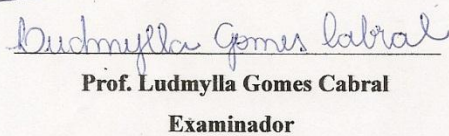 Ludmylla Gomes Cabral
Prof. Ludmylla Gomes Cabral
Examinador